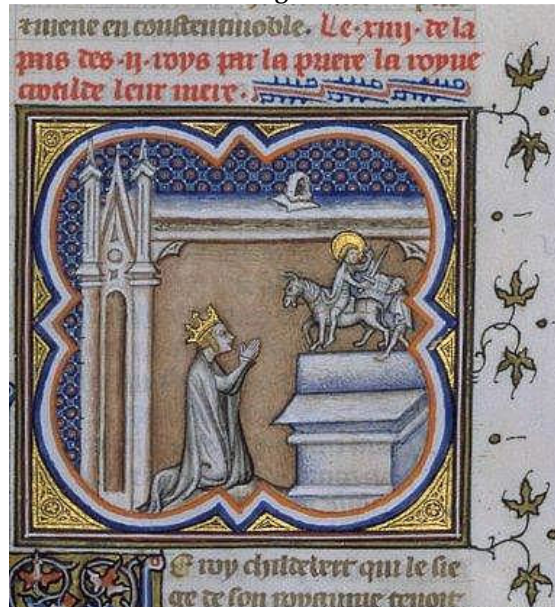 & mene en constentinoble. Le .xiiij. de la
pais des .ij. roys par la priere la royne
crotilde leur mere.
Le roy childebert qui le sie
ge de son royaume tenoit